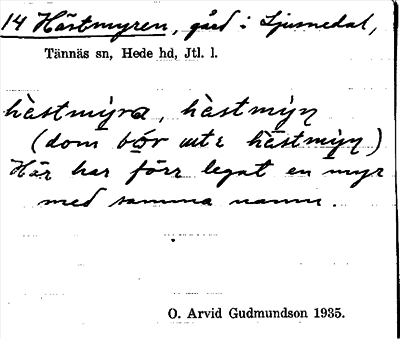 14 Hästmyren, gård i Ljusnedal,
Tännäs sn, Hede hd, Jtl. l.
hästmyra, hästmyn
(dom bor ute hästmyn)
Här har förr legat en myr
med samma namn.
O. Arvid Gudmundson 1935.